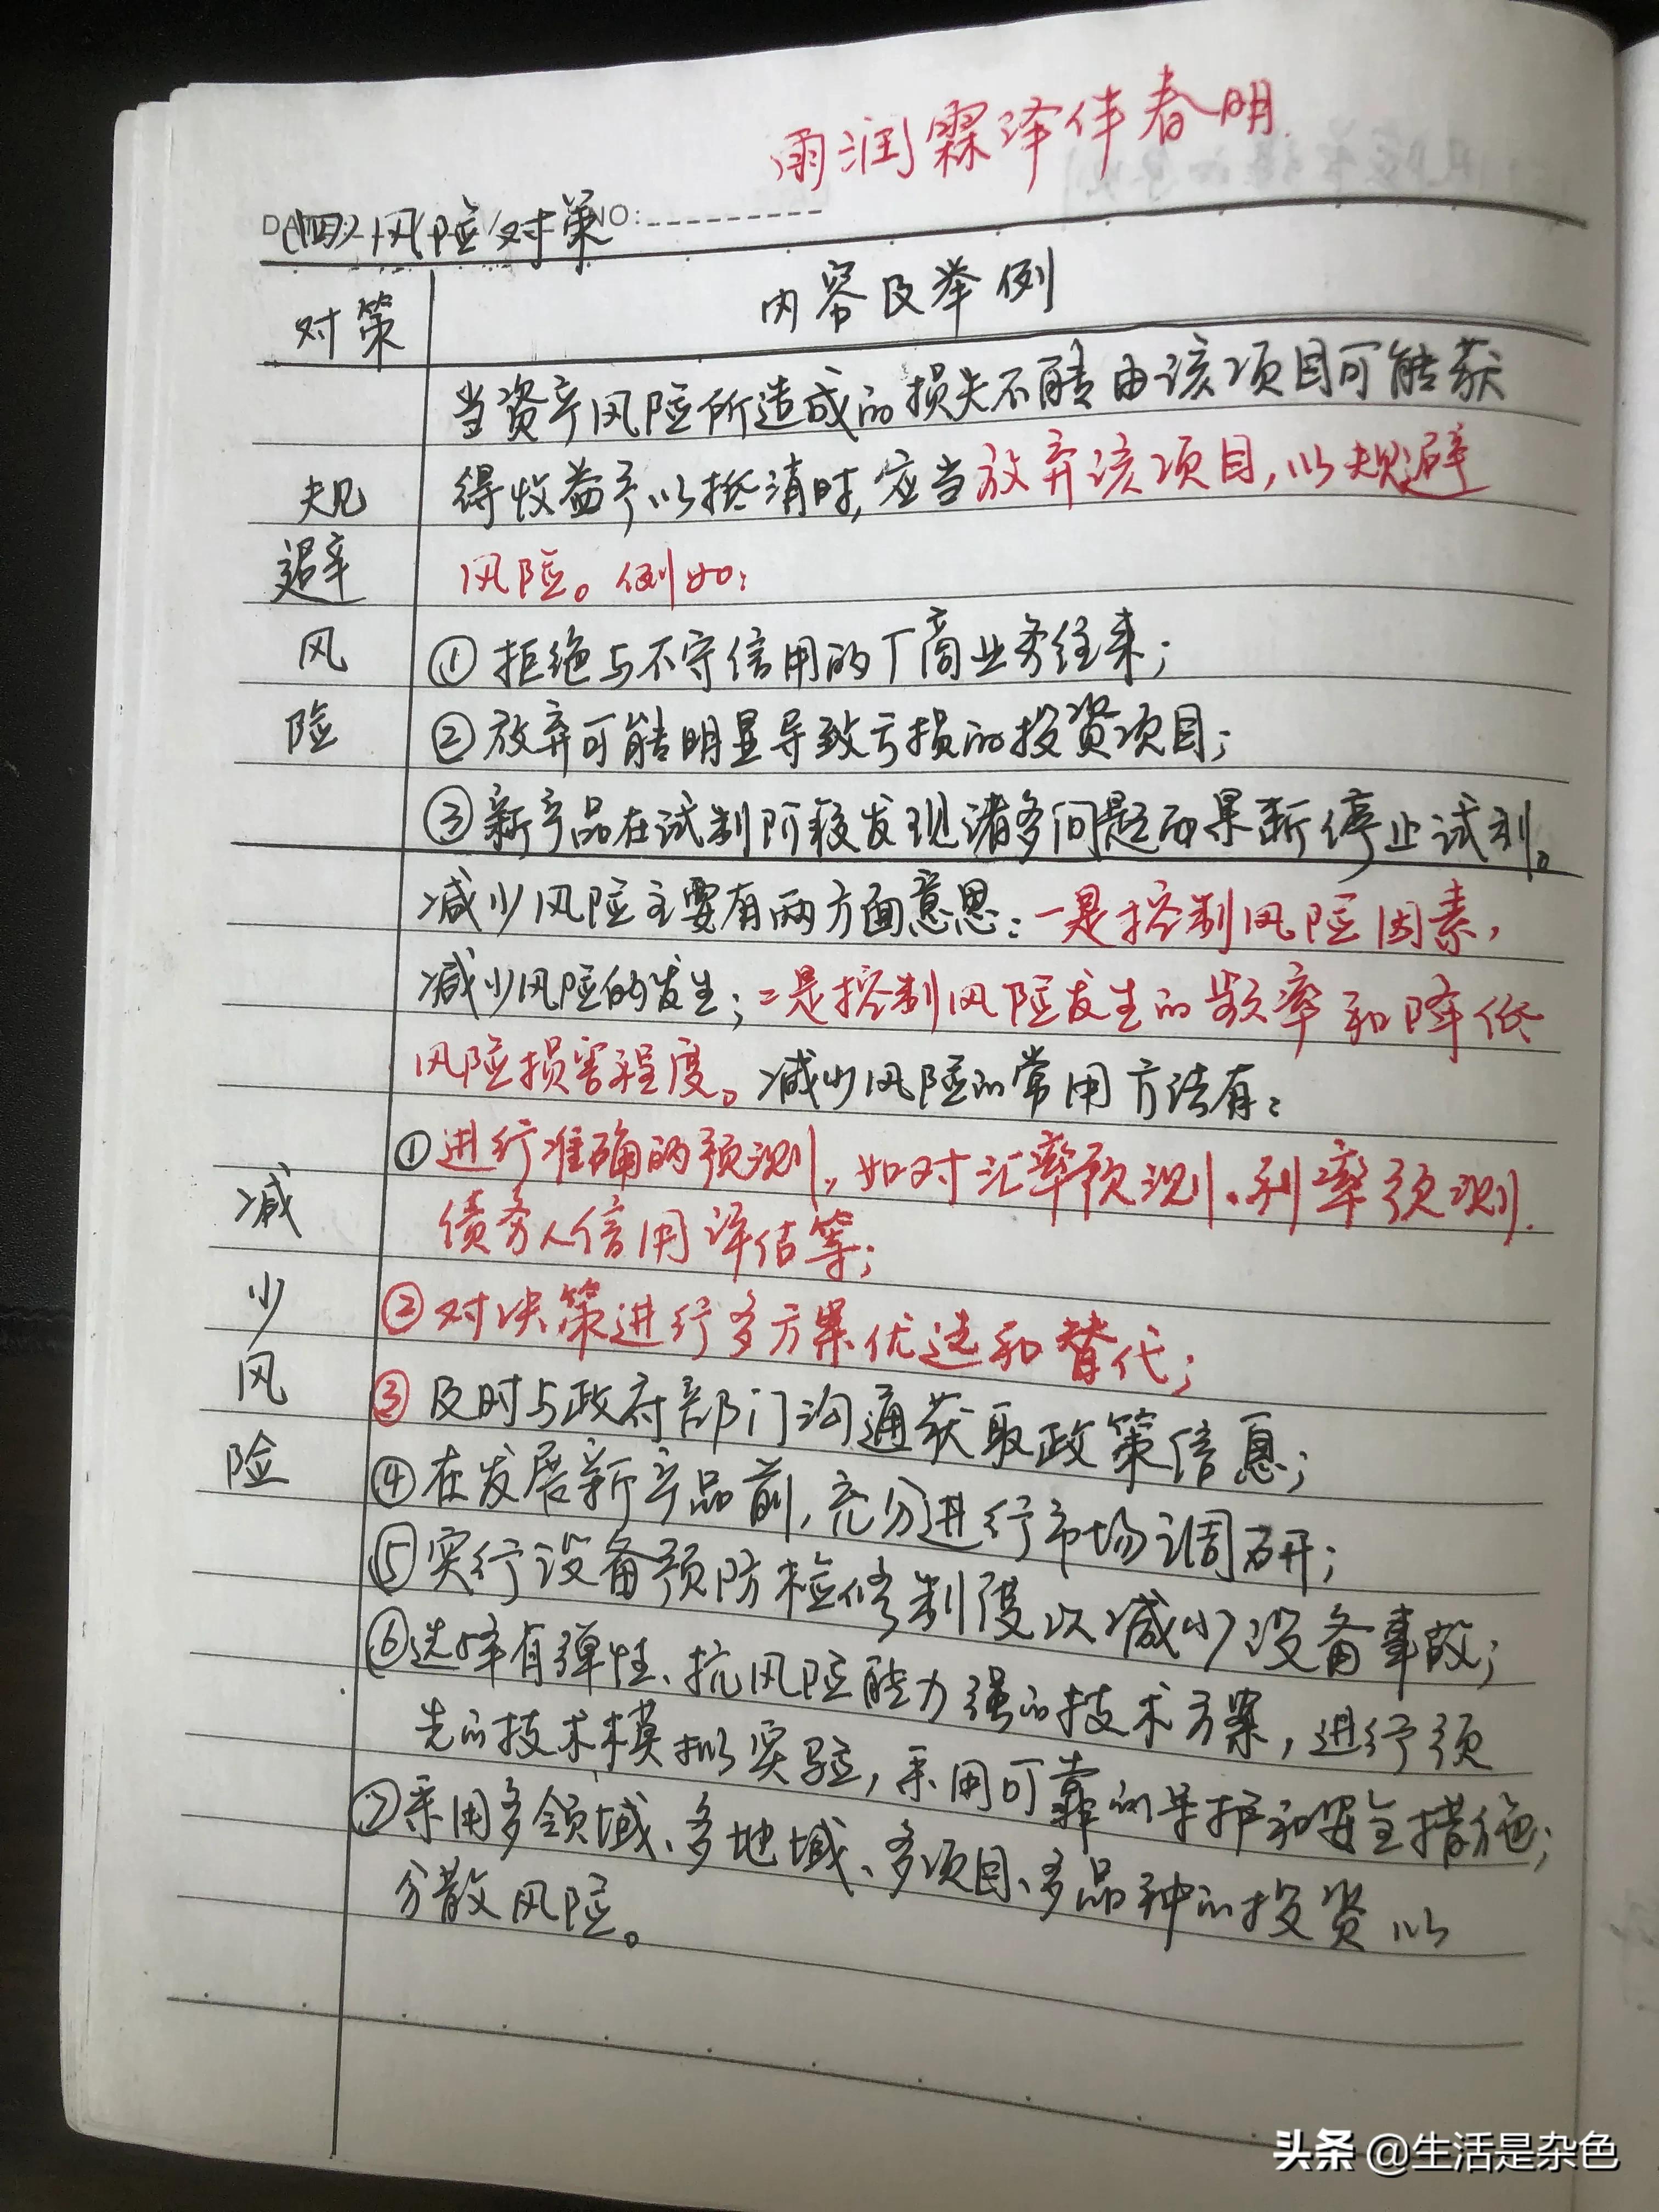 雨润霖泽伴春明
DATE: NO:
(四)风险对策
对策 内容及举例
当资产风险所造成的损失不能由该项目可能获
规 得收益予以抵消时,应当放弃该项目,以规避
避 风险。例如:
风 ①拒绝与不守信用的厂商业务往来;
险 ②放弃可能明显导致亏损的投资项目;
③新产品在试制阶段发现诸多问题而果断停止试制。
减少风险主要有两方面意思:一是控制风险因素,
减少风险的发生;二是控制风险发生的频率和降低
风险损害程度。减少风险的常用方法有:
①进行准确的预测,如对汇率预测、利率预测、
减 债务人信用评估等;
少 ②对决策进行多方案优选和替代;
风 ③及时与政府部门沟通获取政策信息;
险 ④在发展新产品前,充分进行市场调研;
⑤实行设备预防检修制度以减少设备事故;
⑥选择有弹性、抗风险能力强的技术方案,进行预
先的技术模拟实验,采用可靠的保护和安全措施;
⑦采用多领域、多地域、多项目、多品种的投资以
分散风险。
头条 @生活是杂色